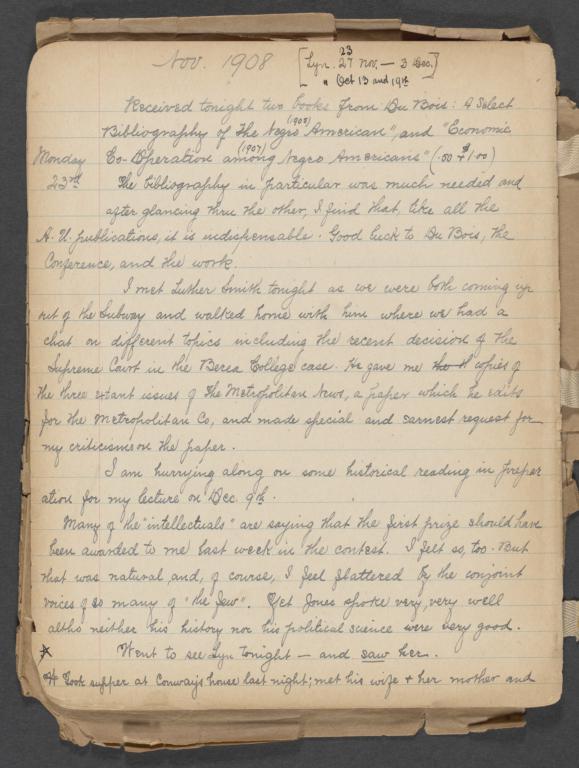 Nov. 1908 [Lyn. 23 27 Nov. — 3 Dec.]
" Oct 13 and 19th
Received tonight two books from Du Bois: A Select
Bibliography of the Negro American" (1905), and "Economic
Monday Co-Operation among Negro Americans" (1907) (.50 + $1.00)
23rd The bibliography in particular was much needed and
after glancing thru the other, I find that, like all the
A. U. publications, it is indispensable. Good luck to Du Bois, the
Conference, and the work.
I met Luther Smith tonight as we were both coming up
out of the Subway and walked home with him where we had a
chat on different topics including the recent decision of the
Supreme Court in the Berea College case. He gave me copies of
the three extant issues of The Metropolitan News, a paper which he edits
for the Metropolitan Co, and made special and earnest request for
my criticisms on the paper.
I am hurrying along on some historical reading in prepar
ation for my lecture on Dec. 9th.
Many of the "intellectuals" are saying that the first prize should have
been awarded to me last week in the contest. I felt so, too. But
that was natural, and, of course, I feel flattered by the conjoint
voices of so many of "the few". Yet Jones spoke very, very well
altho neither his history nor his political science were very good.
☆ Went to see Lyn tonight — and saw her.
Took supper at Conway's house last night; met his wife + her mother and